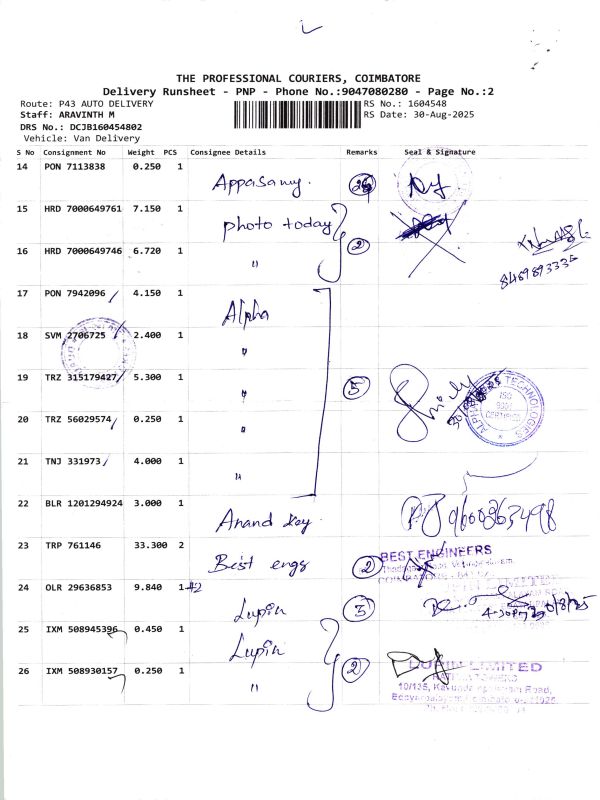 THE PROFESSIONAL COURIERS, COIMBATORE
Delivery Runsheet - PNP - Phone No.:9047080280 - Page No.:2
Route: P43 AUTO DELIVERY
RS No.: 1604548
Staff: ARAVINTH M
RS Date: 30-Aug-2025
DRS No.: DCJB160454802
Vehicle: Van Delivery
S No Consignment No Weight PCS Consignee Details Remarks Seal & Signature
14 PON 7113838 0.250 1 Appasamy.
15 HRD 7000649761 7.150 1 photo today
16 HRD 7000649746 6.720 1 " 2
8469893335
17 PON 7942096 4.150 1 Alpha
18 SVM 2706725 2.400 1 "
19 TRZ 315179427 5.300 1 " 5
ALPHA TECHNOLOGIES
ISO
CERTIFIED
20 TRZ 56029574 0.250 1 "
21 TNJ 331973 4.000 1 "
22 BLR 1201294924 3.000 1 Anand 9600363498
23 TRP 761146 33.300 2 Best engs 2
BEST ENGINEERS
24 OLR 29636853 9.840 1 Lupin 3
25 IXM 508945396 0.450 1 Lupin
26 IXM 508930157 0.250 1 " 2
LUPIN LIMITED
10/135, Road,